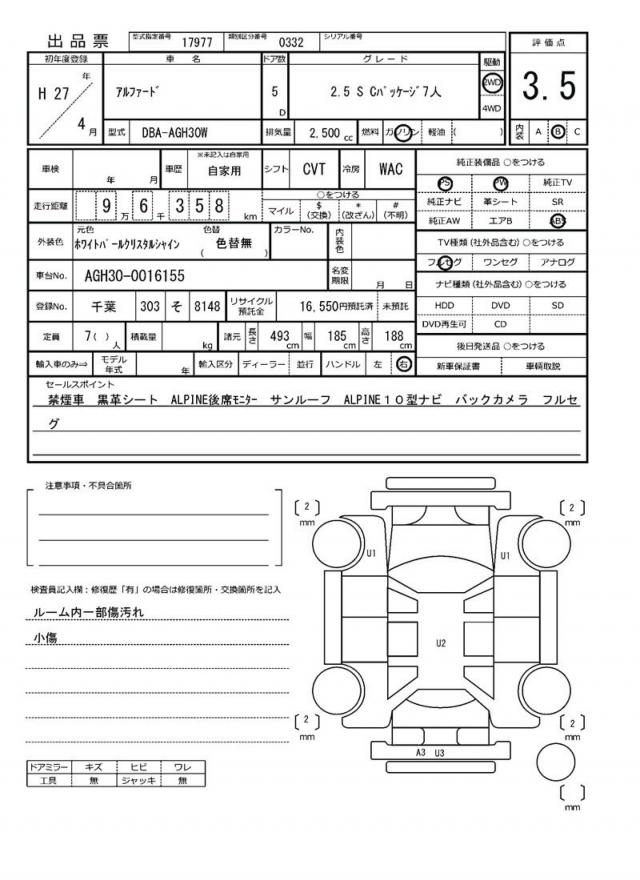 出品票 型式指定番号 17977 類別区分番号 0332 シリアル番号
評価点
3.5
初年度登録 車名 ドア数 グレード 駆動
H 27 年 4 月
アルファード 5 D 2.5 S Cパッケージ7人 2WD 4WD
型式 DBA-AGH30W 排気量 2,500 cc 燃料 ガソリン 軽油 ( ) 内装 A B C
車検 年 月 車歴 ※未記入は自家用 自家用 シフト CVT 冷房 WAC
走行距離 9 万 6 千 3 5 8 km ○をつける
マイル $ (交換) * (改ざん) # (不明)
外装色 元色 ホワイトパールクリスタルシャイン 色替 ( 色替無 ) カラーNo. 内装色
車台No. AGH30-0016155 名変期限 月 日
登録No. 千葉 303 そ 8148 リサイクル預託金 16,550円預託済 未預託
定員 7( ) 人 積載量 kg 諸元 長さ 493 cm 幅 185 cm 高さ 188 cm
輸入車のみ⇒ モデル年式 年 輸入区分 ディーラー 並行 ハンドル 左 右
純正装備品 ○をつける
PS PW 純正TV
純正ナビ 革シート SR
純正AW エアB ABS
TV種類(社外品含む) ○をつける
フルセグ ワンセグ アナログ
ナビ種類(社外品含む) ○をつける
HDD DVD SD
DVD再生可 CD
後日発送品 ○をつける
新車保証書 車輌取説
セールスポイント
禁煙車 黒革シート ALPINE後席モニター サンルーフ ALPINE10型ナビ バックカメラ フルセ
グ
注意事項・不具合箇所
検査員記入欄:修復歴「有」の場合は修復箇所・交換箇所を記入
ルーム内一部傷汚れ
小傷
ドアミラー キズ ヒビ ワレ
工具 無 ジャッキ 無
[ 2 ] mm
[ 2 ] mm
U1
U1
U2
[ 2 ] mm
[ 2 ] mm
A3 U3
[ ] mm